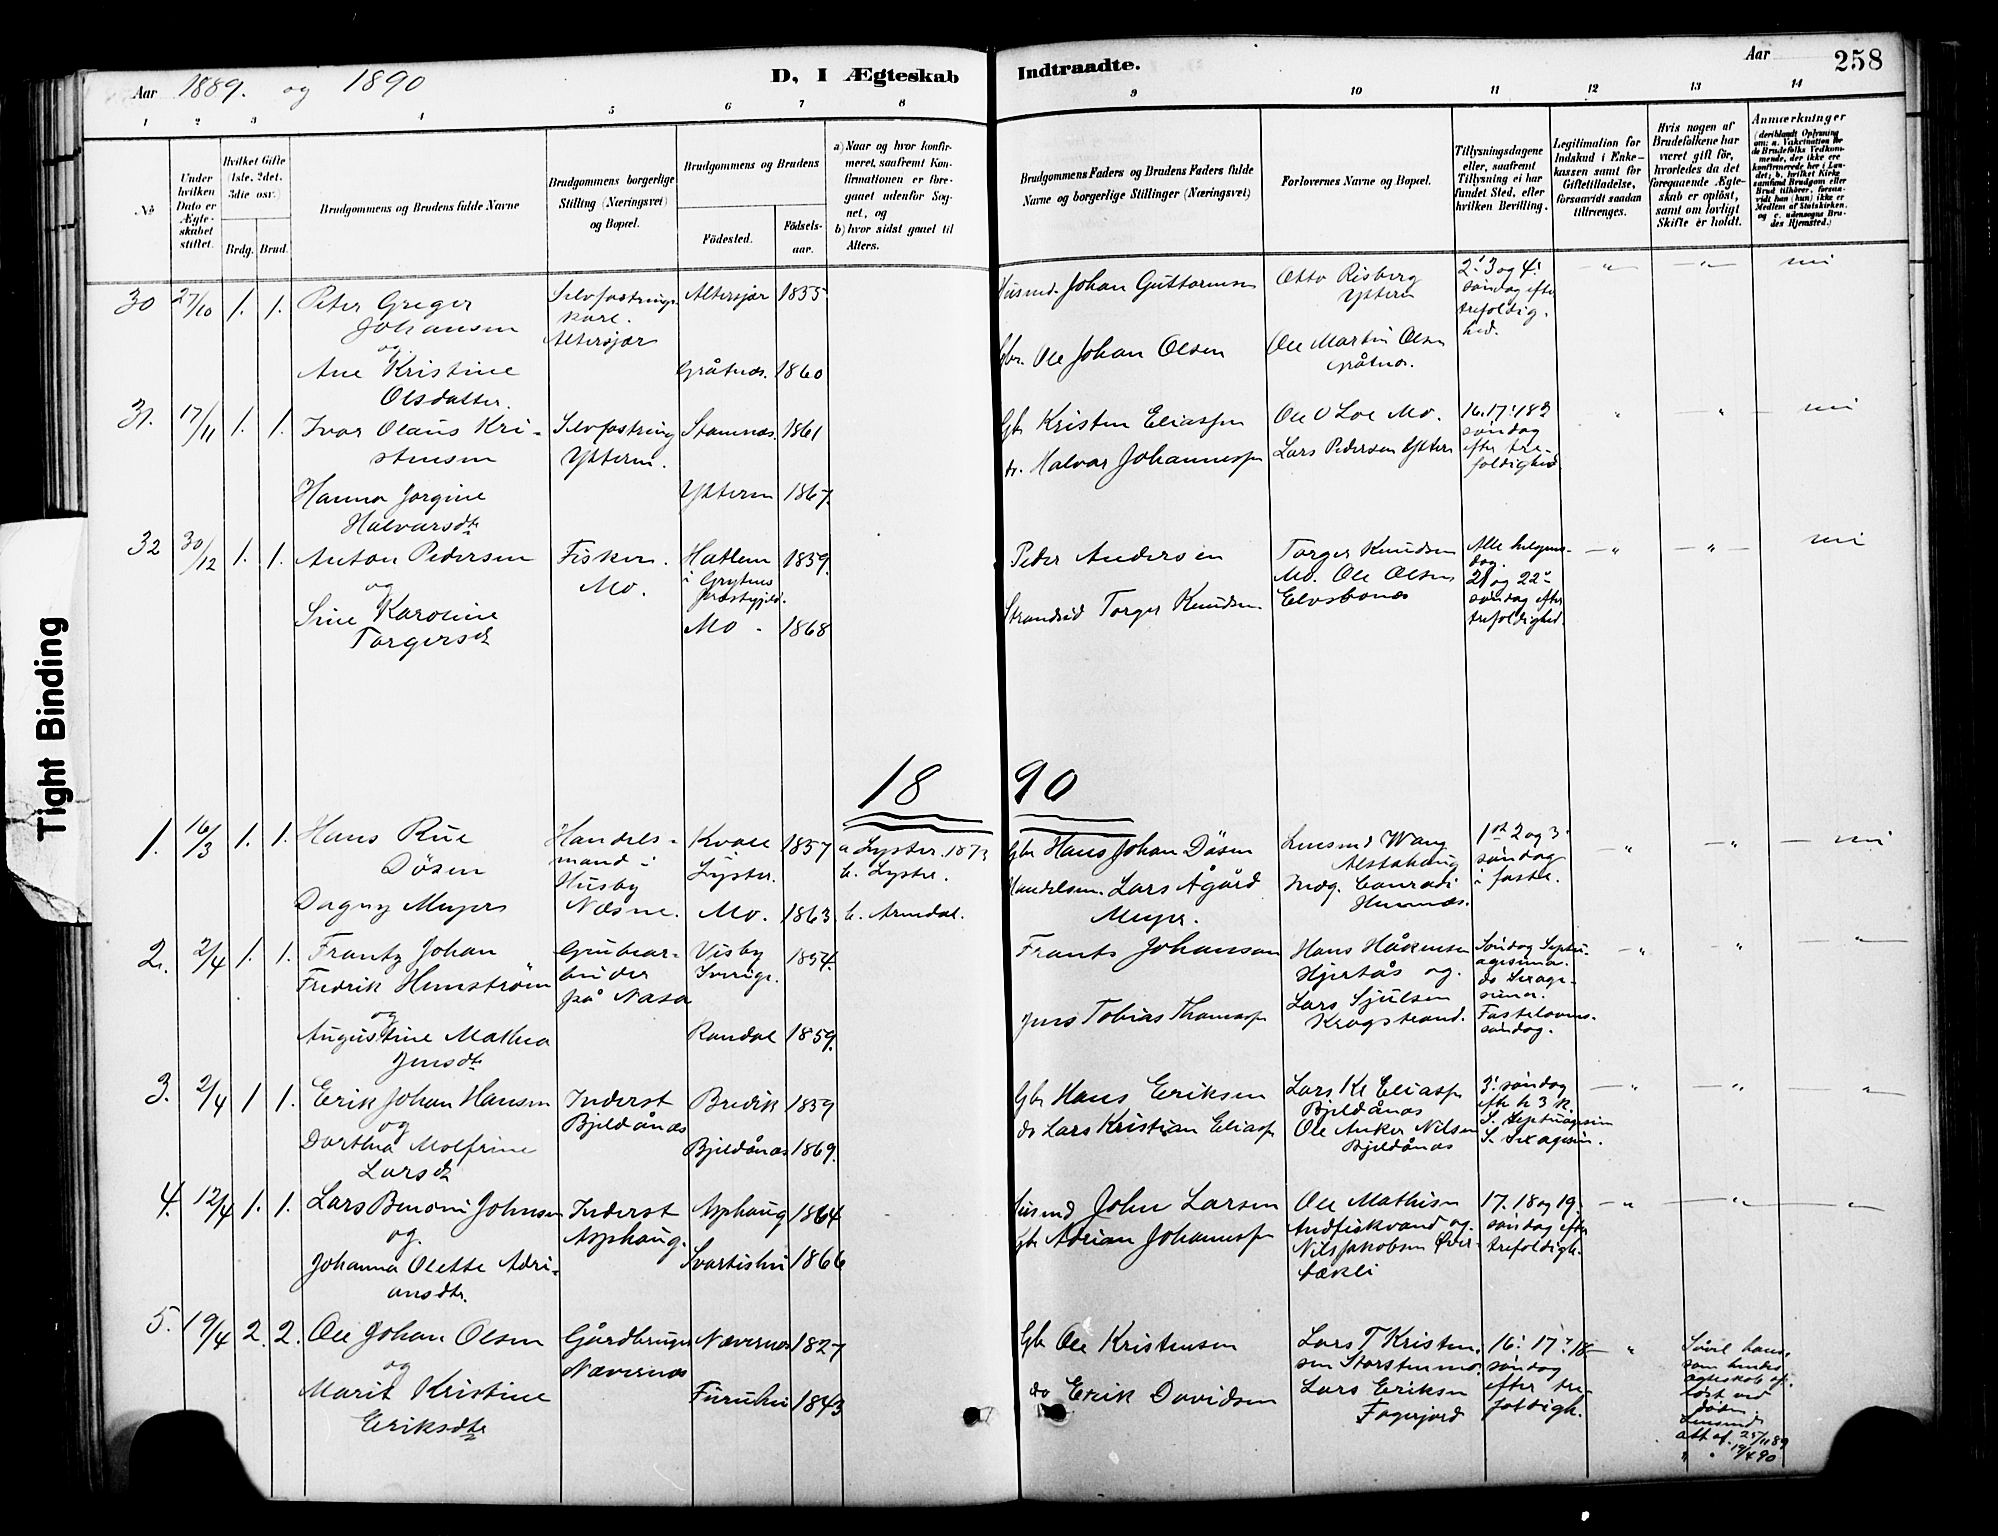 Aar 1889. og 1890
D, I Ægteskab
Indtraadte.
Aar
258
1 2 3 4 5 6 7 8
9 10 11 12 13 14
No
Under hvilken Dato er Ægteskabet stiftet.
Hvilket Gifte (1ste, 2det, 3die osv.)
Brdg. Brud.
Brudgommens og Brudens fulde Navne
Brudgommens borgerlige Stilling (Næringsvei) og Bopæl.
Brudgommens og Brudens
Fødested.
Fødsels-aar.
a) Naar og hvor konfirmeret, saafremt Konfirmationen er foregaaet udenfor Sognet, og
b) hvor sidst gaaet til Alters.
Brudgommens Faders og Brudens Faders fulde Navne og borgerlige Stillinger (Næringsvei)
Forlovernes Navne og Bopæl.
Tillysningsdagene eller, saafremt Tillysning ei har fundet Sted, efter hvilken Bevilling.
Legitimation for Indskud i Enkekassen samt for Giftetilladelse, forsaavidt saadan tiltrænges.
Hvis nogen af Brudefolkene har været gift før, hvorledes da det foregaaende Ægteskab er opløst, samt om lovligt Skifte er holdt.
Anmærkninger
30 27/10 1. 1. Peter Greger
Johansen
og
Ane Kristine
Olsdatter.
Selvfostrings
karl.
Altersjær
Altersjær 1855
Gråtnæs. 1860
Husmd. Johan Guttormsen
Gbr. Ole Johan Olsen
Otto Risberg
Yttern
Ole Martin Olsen
Gråtnæs.
2' 3 og 4'
søndag efter
trefoldig.
hed.
31. 17/11 1. 1. Ivar Olaus Kri-
stensen
Hanna Jorgine
Halvarsdtr
Selvfostring
Ytteren.
Stamnæs. 1861
Ytteren 1867.
Gbr Kristen Eliassen
do. Halvar Johannessen
Ole O Loe Mo.
Lars Pedersen Yttern
16. 17. 18d
søndag
efter tre-
foldighed.
32 30/12 1. 1. Anton Pedersen
og
Sine Karoline
Torgersd
Fisker.
Mo.
Hatlem 1859.
i Grytens
Præstegjeld.
Mo. 1868
Peder Andersen
Strandsid Torger Knudsen
Torger Knudsen
Mo. Ole Olsen
Elvsbanes
Alle helgens-
dag.
21 og 22
søndag efter
trefoldighed.
1890
1. 16/3 1. 1. Hans Rue
Døsen
Dagny Meyer
Handels-
mand i
Husby
Næsne.
Kvale 1857
Lyster.
Mo. 1863
a Lyster 1873
b. Lyster.
b. Arendal.
Gbr Hans Johan Døsen
Handelsm. Lars Ågård
Meyer.
Lensmd Wang
Alstahaug
Indg. Conradi
Hemnæs.
1ste 2 og 3
søndag
i faste.
2. 2/4 1. 1. Frantz Johan
Fredrik Hemström
og
Augustine Mathea
Jensdtr
Grubear-
beider
på Nasa
Visby 1854.
Sverige.
Randal 1859.
Frants Johansson
Jens Tobias Thomassen
Hans Håkensen
Hjertås og
Lars Sjulsen
Krogstrand.
Søndag Septu-
agesima.
do Sexage-
sima.
Fastelavns-
søndag.
3. 2/4 1 1. Erik Johan Hansen
og
Dorthea Molfrine
Larsd
Inderst
Bjeldånæs
Bredik 1859
Bjeldånæs 1869.
Gbr Hans Eriksen
do Lars Kristian Eliassen
Lars Kr Eliassen
Bjeldånæs
Ole Anker Nilsen
Bjeldånæs
3' søndag
eft h 3 K.
S. Septuagesim
S. Sexagesim.
4. 12/4 1. 1. Lars Benoni Johnsen
og.
Johanna Olette Adri-
ansdtr.
Inderst
Asphaug.
Asphaug 1864
Svartishei 1866
Husmd John Larsen
Gbr Adrian Johannessen
Ole Mathisen
Andfiskvand og
Nils Jakobsen Øver-
bækli
17. 18 og 19.
søndag efter
trefoldigh.
5. 19/4 2. 2. Ole Johan Olsen
og
Marit Kristine
Eriksdtr
Gårdbruger
Nævernæs
Nævernæs 1827
Furuhei 1843
Gbr Ole Kristensen
do Erik Davidsen
Lars T Kristen-
sen Storstenmo.
Lars Eriksen
Fagerjord
16. 17. 18
søndag
efter tre-
foldigh.
Såvel hans
som hendes
ægteskab op-
løst ved
døden.
Lensmd
att af. 25/11 89
" " 19/4 90
Tight Binding